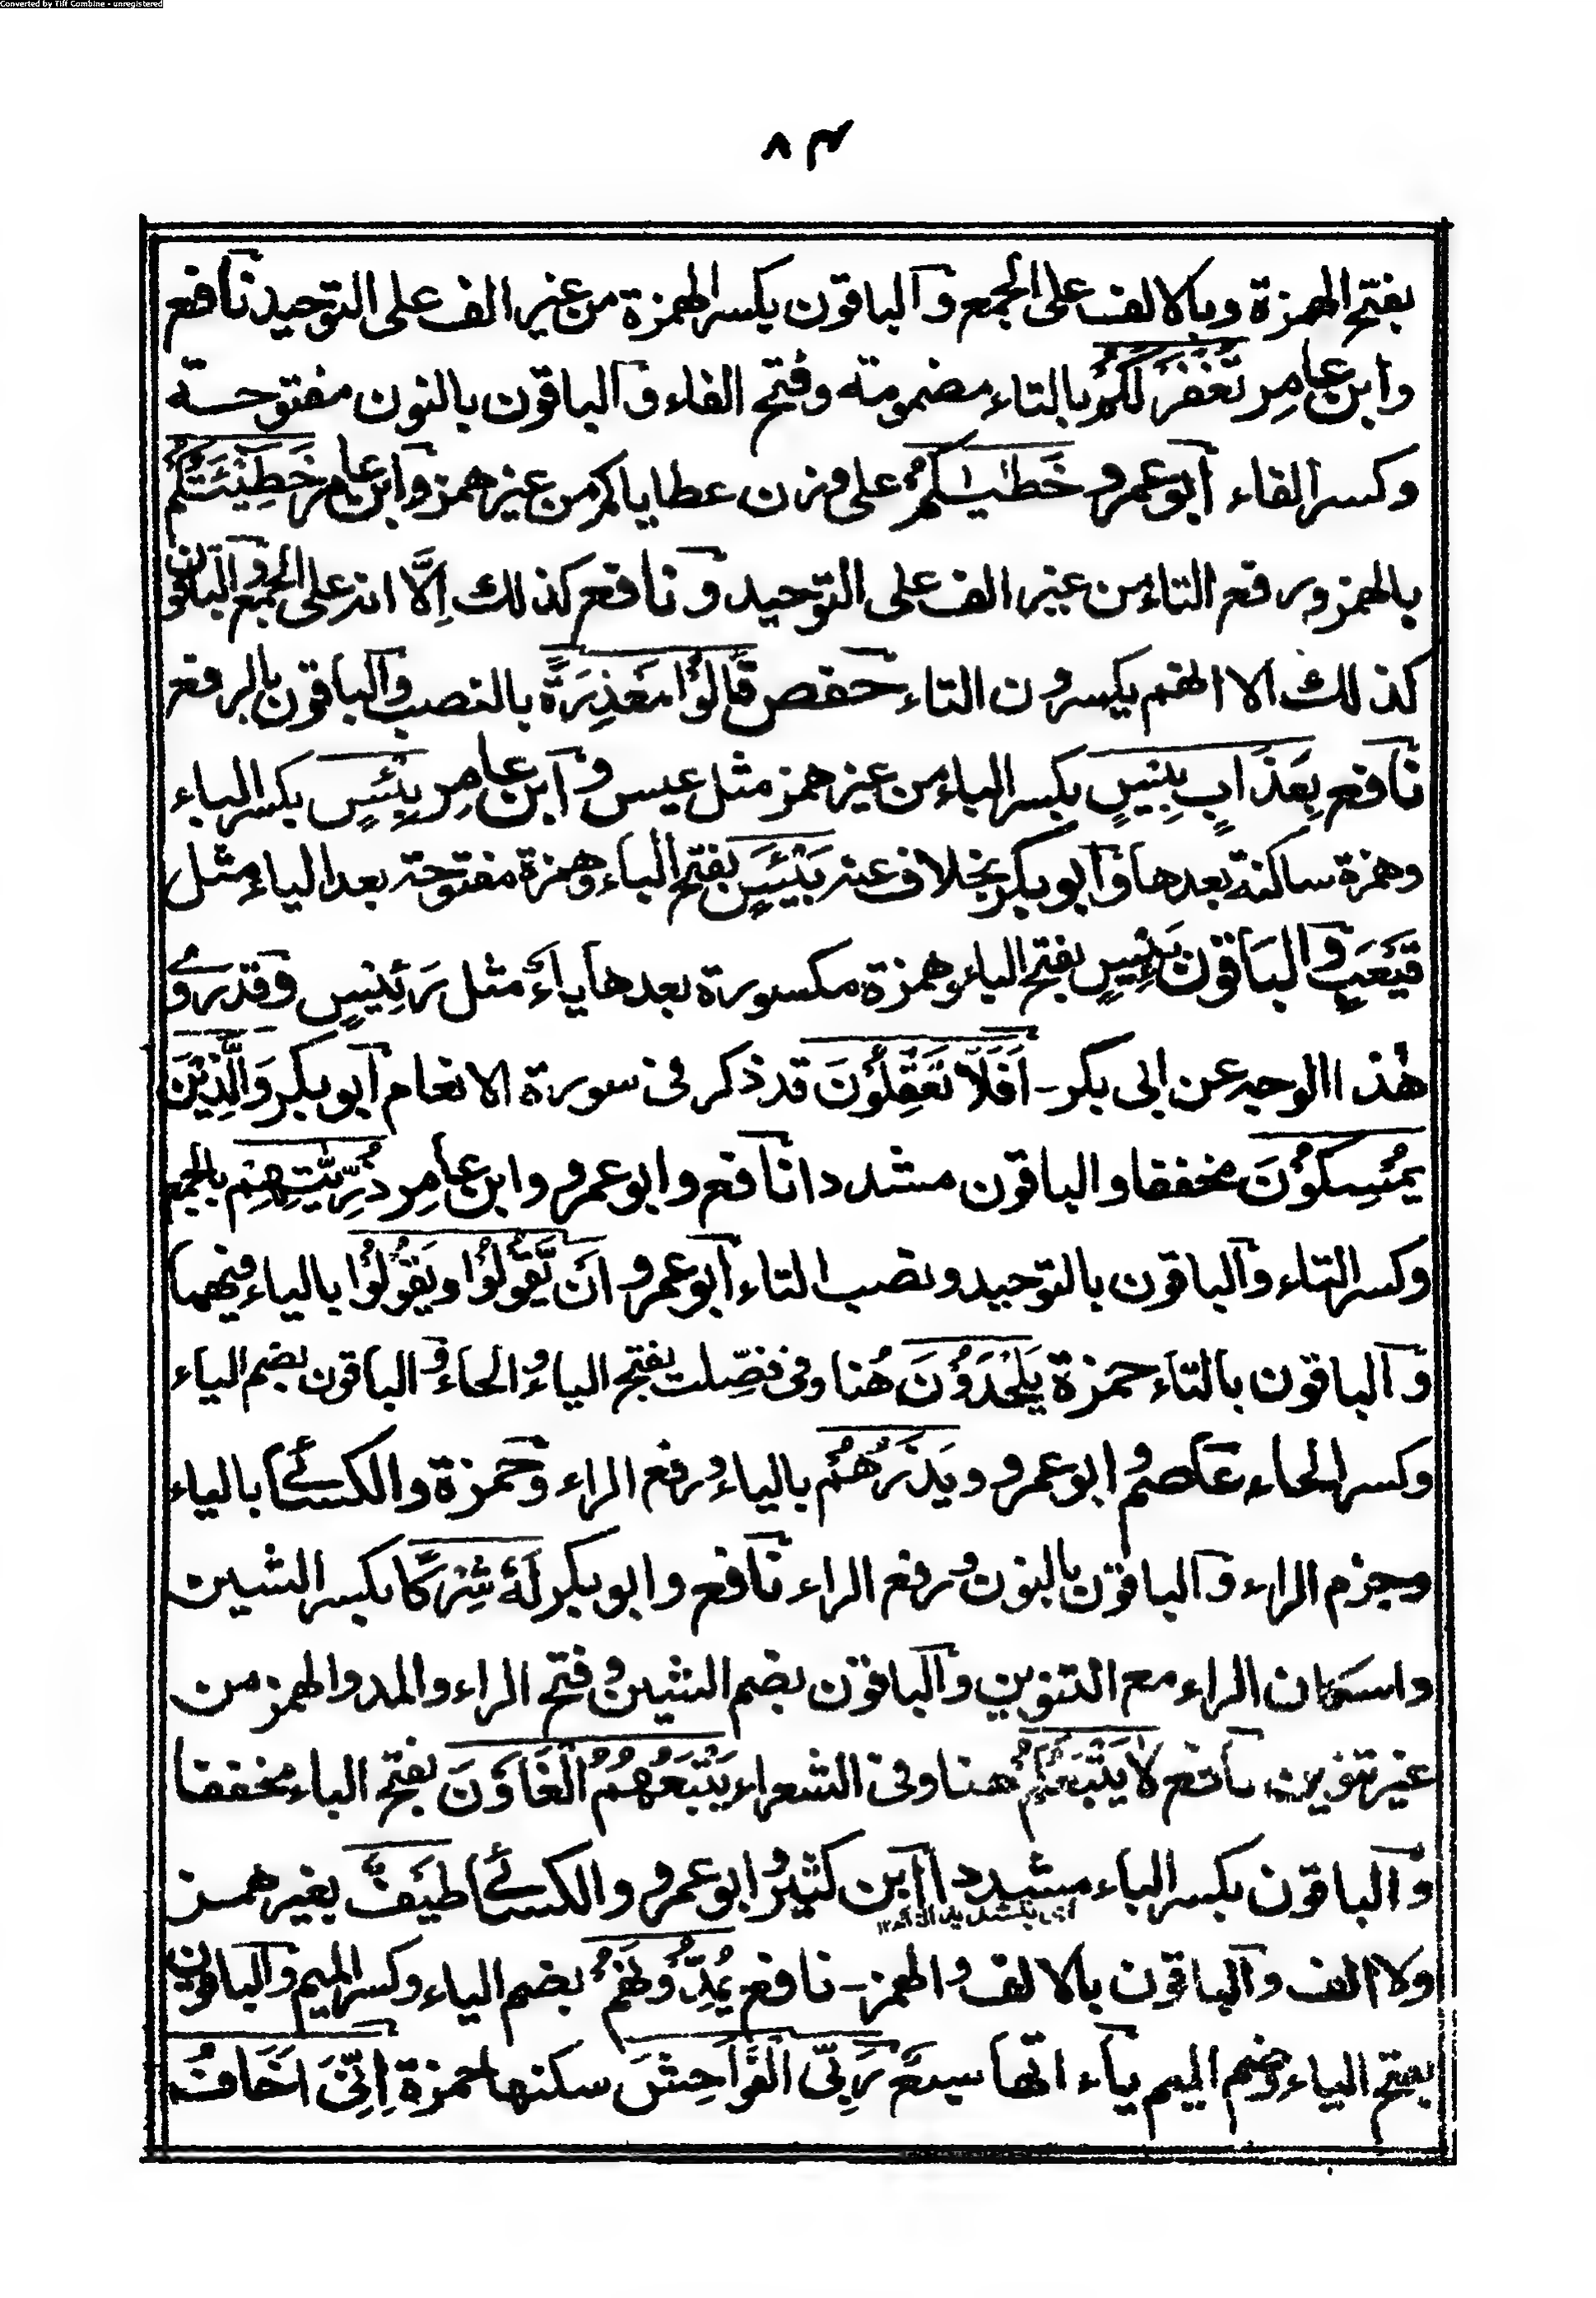 Converted by Tiff Combine - unregistered
٨٣
بفتح الهمزة وبالالف على الجمع والباقون بكسر الهمزة من غير الف على التوحيد نافع
وابن عامر تُغْفَرْ لَكُمْ بالتاء مضمومة وفتح الفاء والباقون بالنون مفتوحة
وكسر الفاء ابو عمرو خَطٰيٰكُمْ على وزن عطاياكم من غير همز وابن عامر خَطِيْئَتُكُمْ
بالهمز ورفع التاء من غير الف على التوحيد ونافع كذلك اِلَّا انه على الجمع والباقون
كذلك الا انهم يكسرون التاء حفص قَالُوْا مَعْذِرَةً بالنصب والباقون بالرفع
نافع بِعَذَابٍ بِيْسٍ بكسر الباء من غير همز مثل عيس وابن عامر بِئْسٍ بكسر الباء
وهمزة ساكنة بعدها وابو بكر بخلاف عنه بَيْئَسٍ بفتح الباء وهمزة مفتوحة بعد الياء مثل
قَيْعَبٍ والباقون بَئِيْسٍ بفتح الباء وهمزة مكسورة بعدها ياء مثل رَئِيْسٍ وقد روى
هٰذا الوجه عن ابى بكر - اَفَلَا تَعْقِلُوْنَ قد ذكر فى سورة الانعام ابو بكر وَالَّذِيْنَ
يُمْسِكُوْنَ مخففا والباقون مشددا نافع وابو عمرو وابن عامر ذُرِّيّٰتِهِمْ بالجمع
وكسر التاء والباقون بالتوحيد ونصب التاء ابو عمرو اَنْ يَّقُوْلُوْا ويَقُوْلُوْا بالياء فيهما
والباقون بالتاء حمزة يَلْحَدُوْنَ هُنا وفى فصِّلت بفتح الياء والحاء والباقون بضم الياء
وكسر الحاء عاصم وابو عمرو ويَذَرُهُمْ بالياء ورفع الراء وحمزة والكسائى بالياء
وجزم الراء والباقون بالنون ورفع الراء نافع وابو بكر لَهٗ شِرْكًا بكسر الشين
واسكان الراء مع التنوين والباقون بضم الشين وفتح الراء والمد والهمز من
غير تنوين نافع لَا يَتْبَعُوْكُمْ هنا وفى الشعراء يَتْبَعُهُمُ الْغَاوٗنَ بفتح الباء مخففا
والباقون بكسر الباء مشددا ابن كثير وابو عمرو والكسائى طَيْفٌ بغير همز
ولا الف والباقون بالالف والهمز - نافع يُمِدُّوْنَهُمْ بضم الياء وكسر الميم والباقون
بفتح الياء وضم الميم ياء اتها سبع رَبِّىَ الْفَوَاحِشَ سكنها حمزة اِنِّىَ اَخَافُ